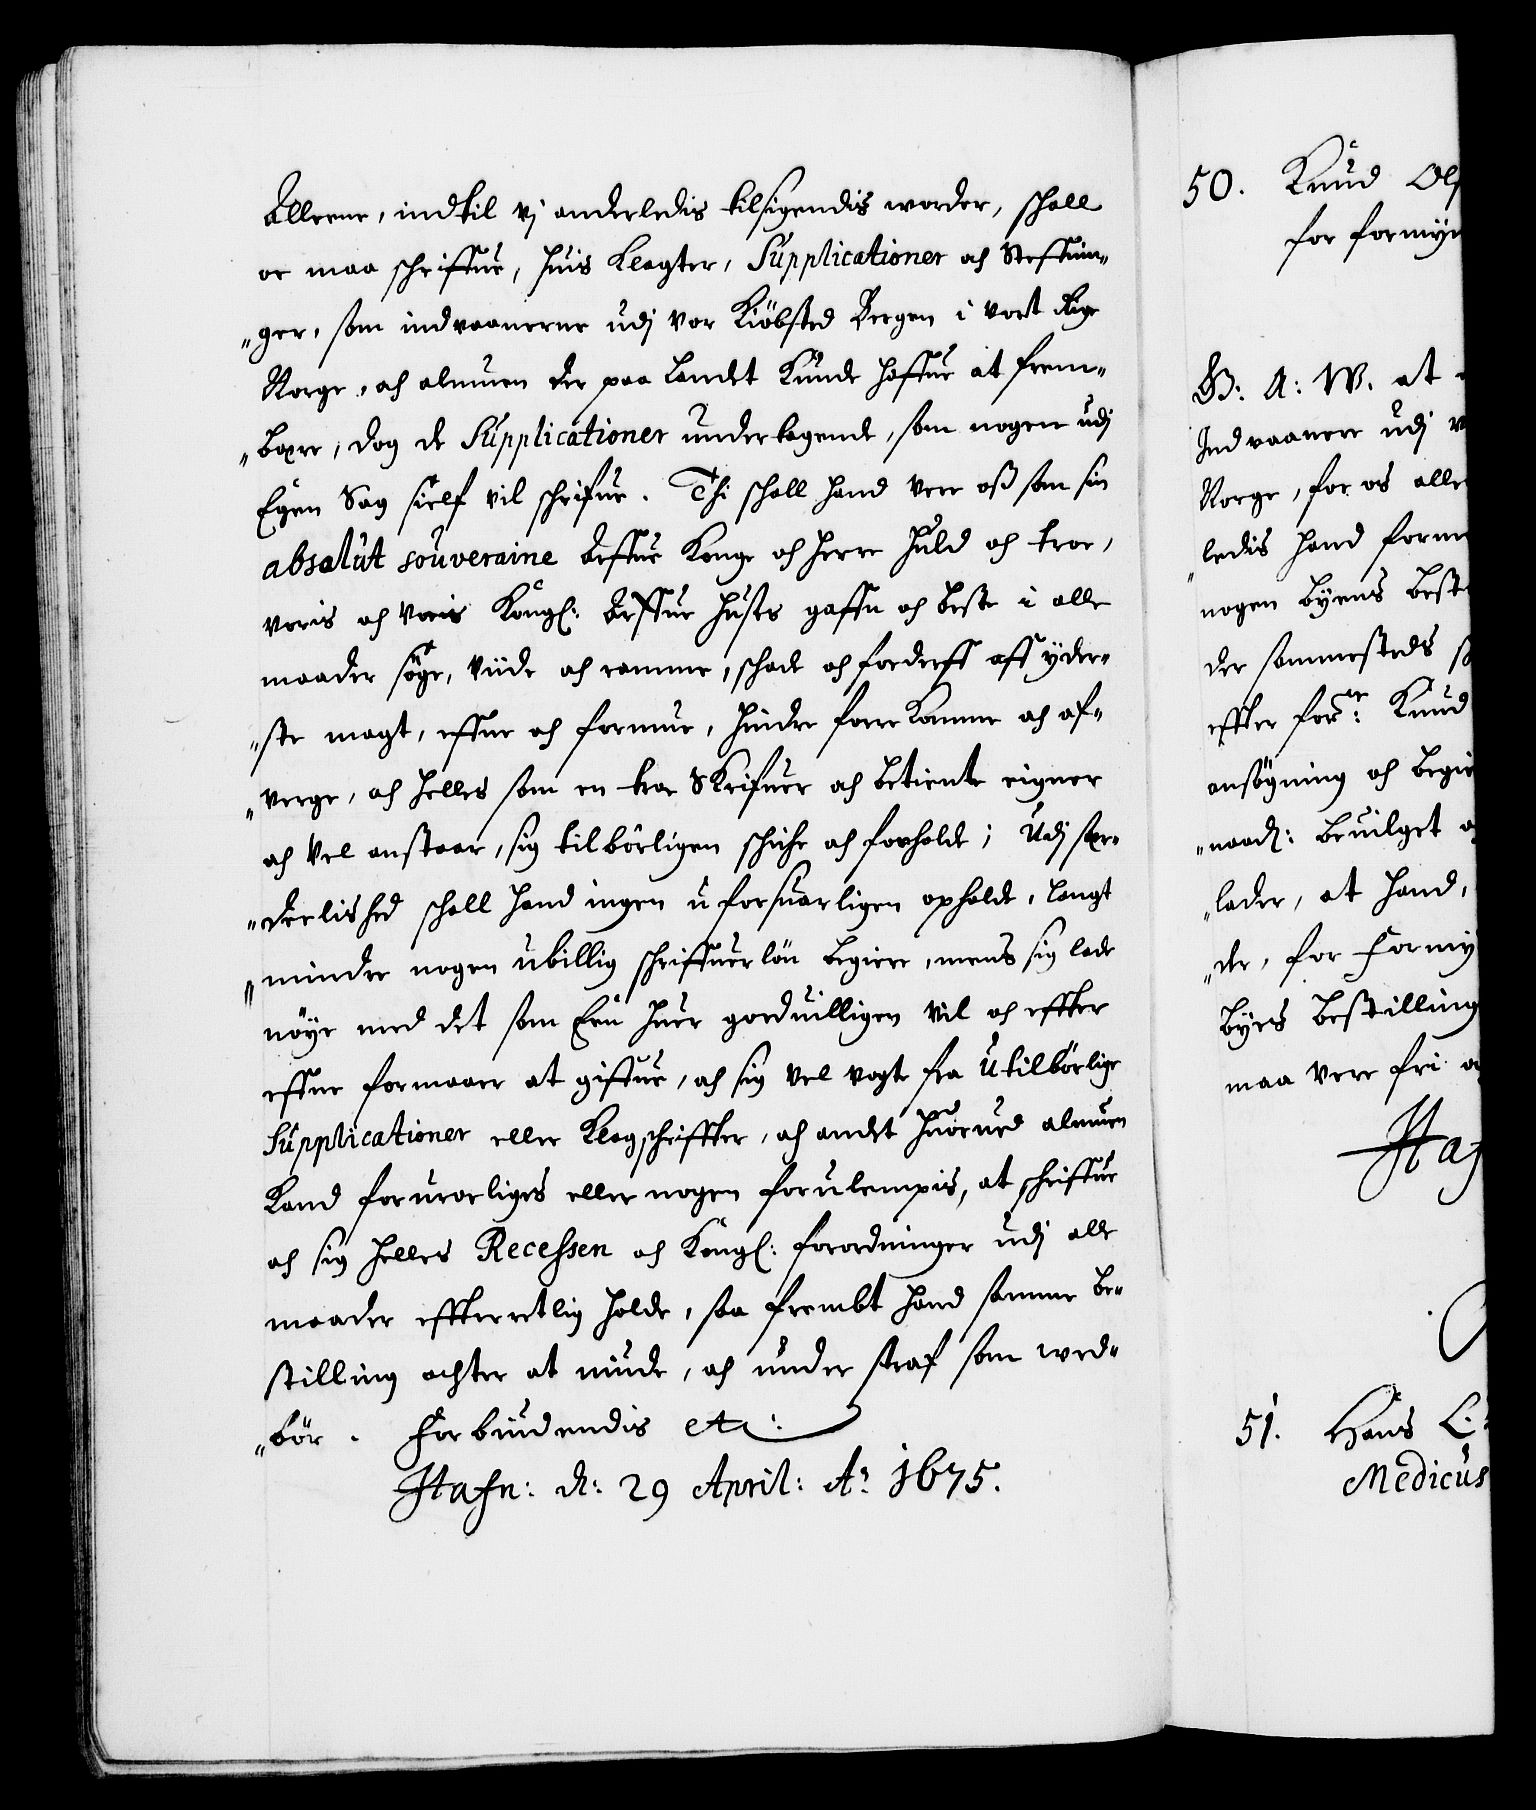 Alleene, indtil vj anderledis tilsigendis worder, schall
oc maa schriffue, huis Klagter, Supplicationer och Steffnin-
"ger, som indvaanerne udj vor Kiöbsted Bergen i vort Rige
Norge, och almuen der paa Landet kunde haffue at frem-
"bære, dog de Supplicationer undertagende, som nogen udj
Egen Sag sielf vil schrifue. Thi schall hand vere oß som sin
absolut souveraine Arffue Konge och Herre Huld och troe,
voris och voris Kongl: Arffue Huses gaffn och beste i alle
maader söge, viide och ramme, schade och forderff aff yder-
"ste magt, effne och formue, hindre forrekomme och af-
"verge, och helles som en troe Skrifuer och betiente eigner
och vel anstaar, sig tilbörligen schiche och forholde; Udj sær-
"deelished schall hand ingen uforsuarligen opholde, langt
"mindre nogen ubillig schriffuerlön begiere, mens sig lade
nöye med det som Een huer goduilligen vil och effter
effne formaaer at gifue, och sig vel vogte fra Utilbörlige
Supplicationer eller Klagschriffter, och andet huorued almuen
Kand foruroeliges eller nogen forulempis, at schriffue
och sig helles Recessen och Kongl: forordninger udj alle
maader effterretlig holde, saa frembt hand samme be-
stilling achter at niude, och under straf som wed-
"bör. Forbiudendis etc:
Hafn: d: 29 April: Ao 1675.
50. Knud Ols
for formyn
G: A: W. at
Indvaaner udj v
Norge, for os alle
ledis hand form
nogen Byens best
der sammesteds s
effter forne: Knud
ansögning och begie
"naad: beuilget o
"lader, at hand,
"de, for Formy
Byes bestilling
maa vere fri o
Haf
51. Hans C:
Medicus